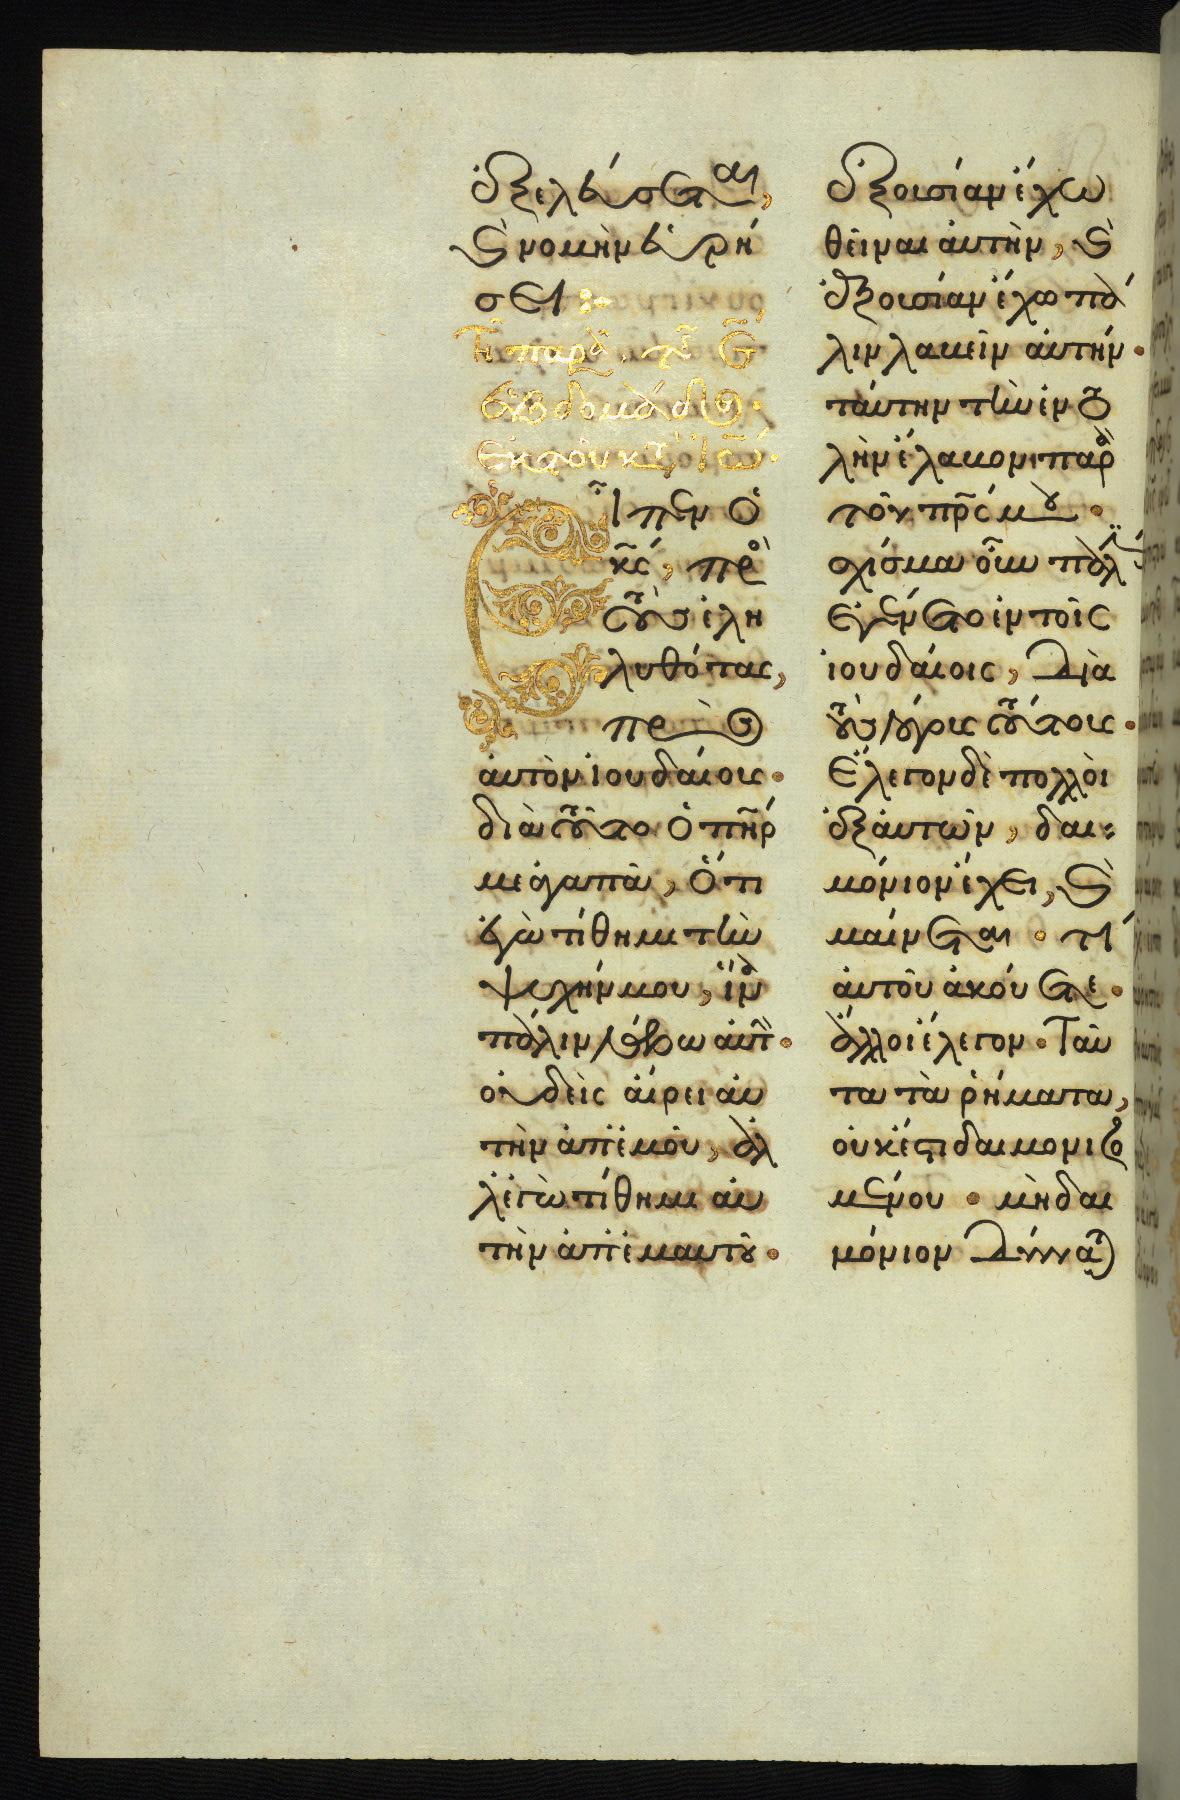 ἐξελεύσεται,
καὶ νομὴν εὑρή
σει :
Τῇ παρα. τῆς ϛ
ἑβδομάδος.
Ἐκ τοῦ κατὰ Ἰω.
Εἶπεν ὁ
κς, πρὸς
τοὺς ἐλη
λυθότας,
πρὸς
αὐτὸν ἰουδαίοις.
διὰ τοῦτο ὁ πηρ
με ἀγαπᾶ, ὅτι
ἐγὼ τίθημι τὴν
ψυχήν μου, ἵνα
πάλιν λάβω αὐτ.
οὐδεὶς αἴρει αὐ
τὴν ἀπ' ἐμοῦ, ἀλ
λ' ἐγὼ τίθημι αὐ
τὴν ἀπ' ἐμαυτοῦ.
ἐξουσίαν ἔχω
θεῖναι αὐτὴν, καὶ
ἐξουσίαν ἔχω πά
λιν λαβεῖν αὐτήν.
ταύτην τὴν ἐντο
λὴν ἔλαβον παρὰ
τοῦ πρς μου.
σχίσμα οὖν πάλιν
ἐγένετο ἐν τοῖς
ἰουδαίοις, διὰ
τοὺς λόγοις τούτοις.
Ἔλεγον δὲ πολλοὶ
ἐξ αὐτῶν, δαι
μόνιον ἔχει, καὶ
μαίνεται. τί
αὐτοῦ ἀκούετε.
ἄλλοι ἔλεγον. Ταῦ
τα τὰ ῥήματα,
οὐκ ἔστι δαιμονιζο
μένου. μὴ δαι
μόνιον δύναται